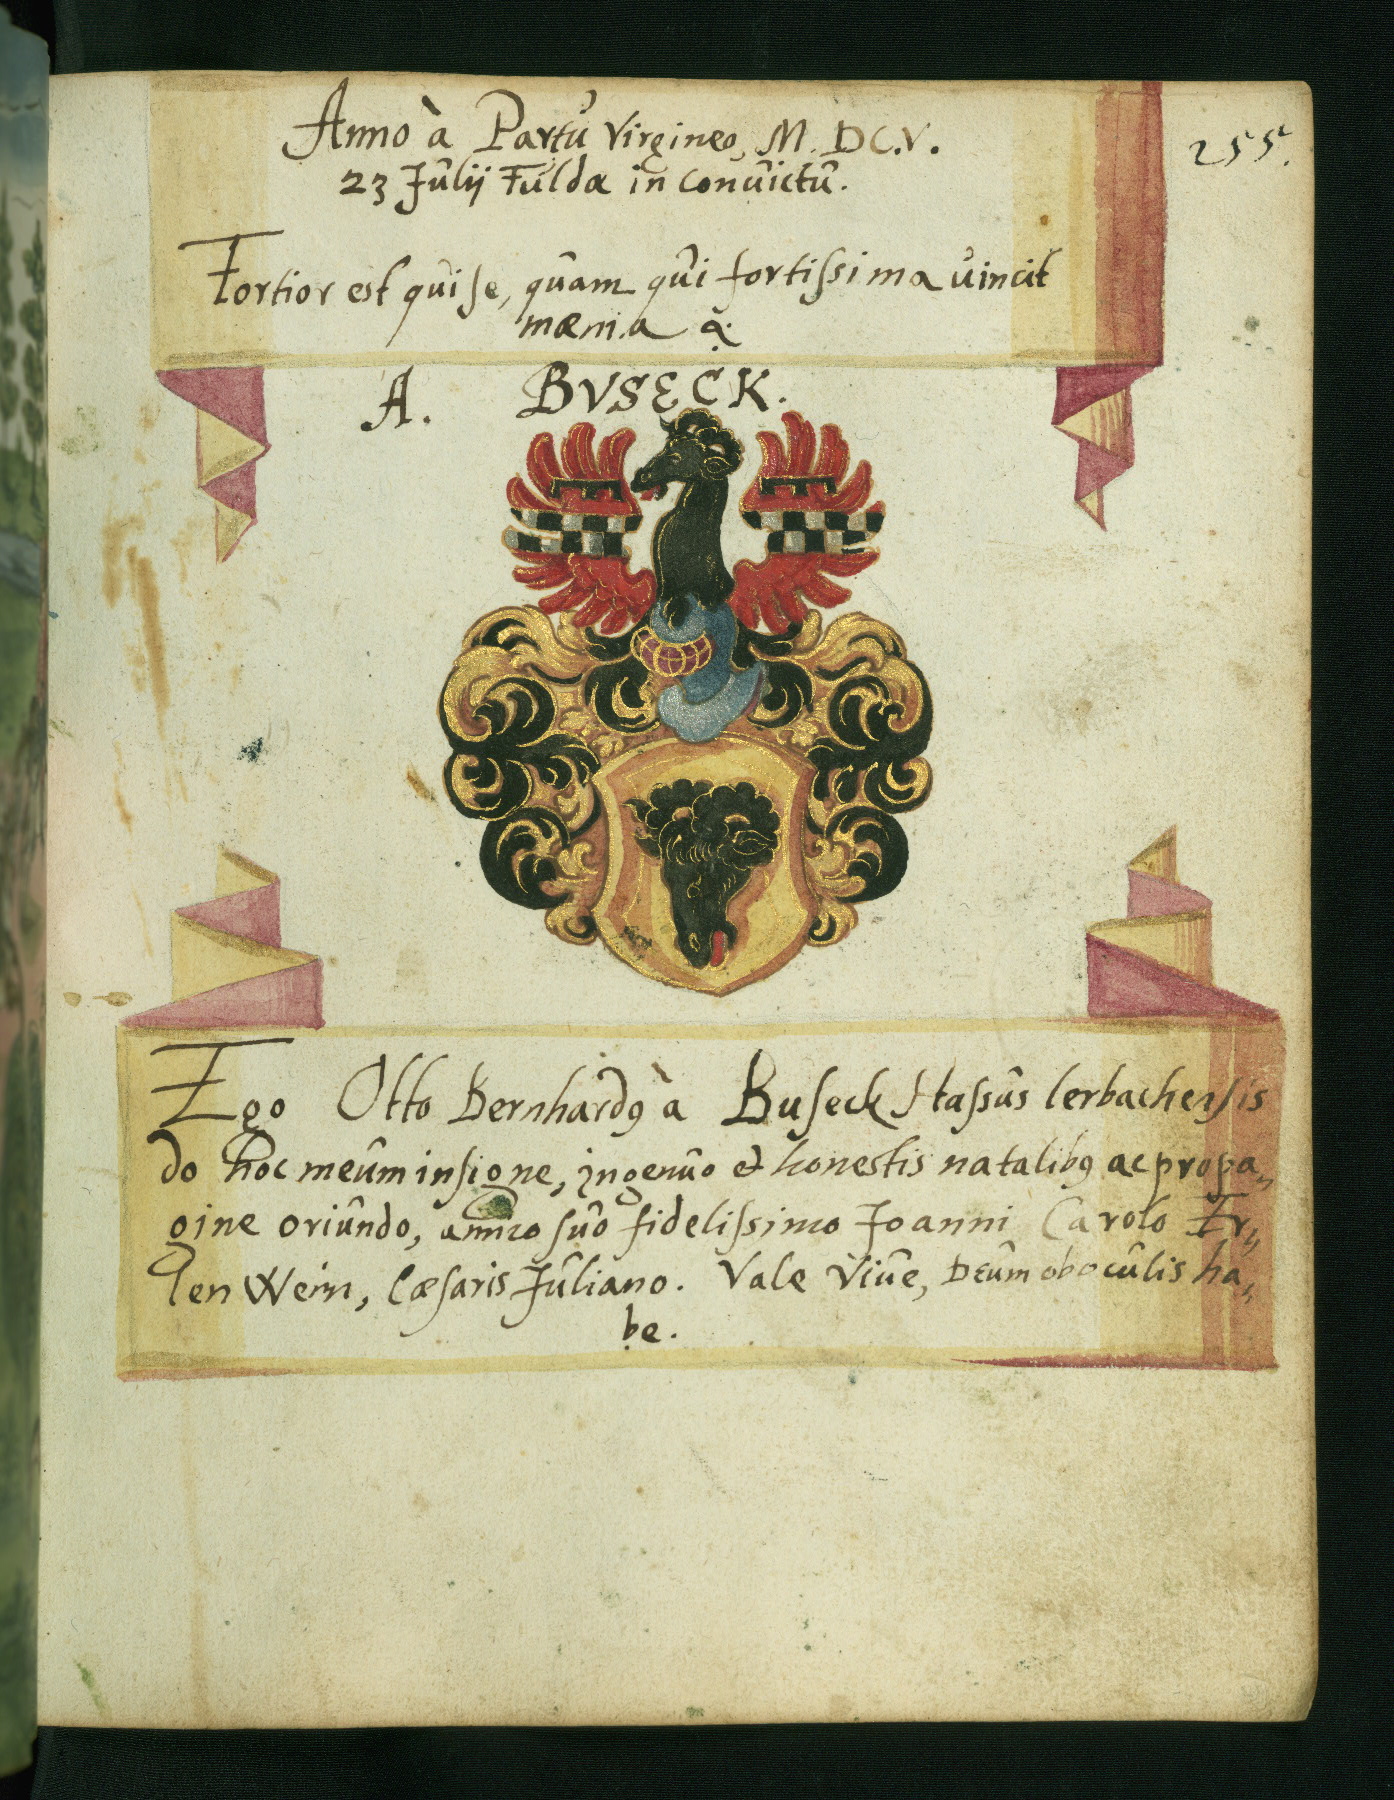 Anno à Partu Virgineo, M. DC.V.
255.
23 Julij Fuldæ in conuictu.
Fortior est qui se, quam qui fortissima uincit
mænia
A. BVSECK.
Ego Otto Bernhardꝰ à Buseck Hassus lerbachensis
do hoc meum insigne, ingenuo et honestis natalibꝰ ac propa„
gine oriundo, amico suo fidelissimo Joanni Carolo Er„
len Wein, Cæsaris Juliano. Vale Viue, Deum ob oculis ha„
be.